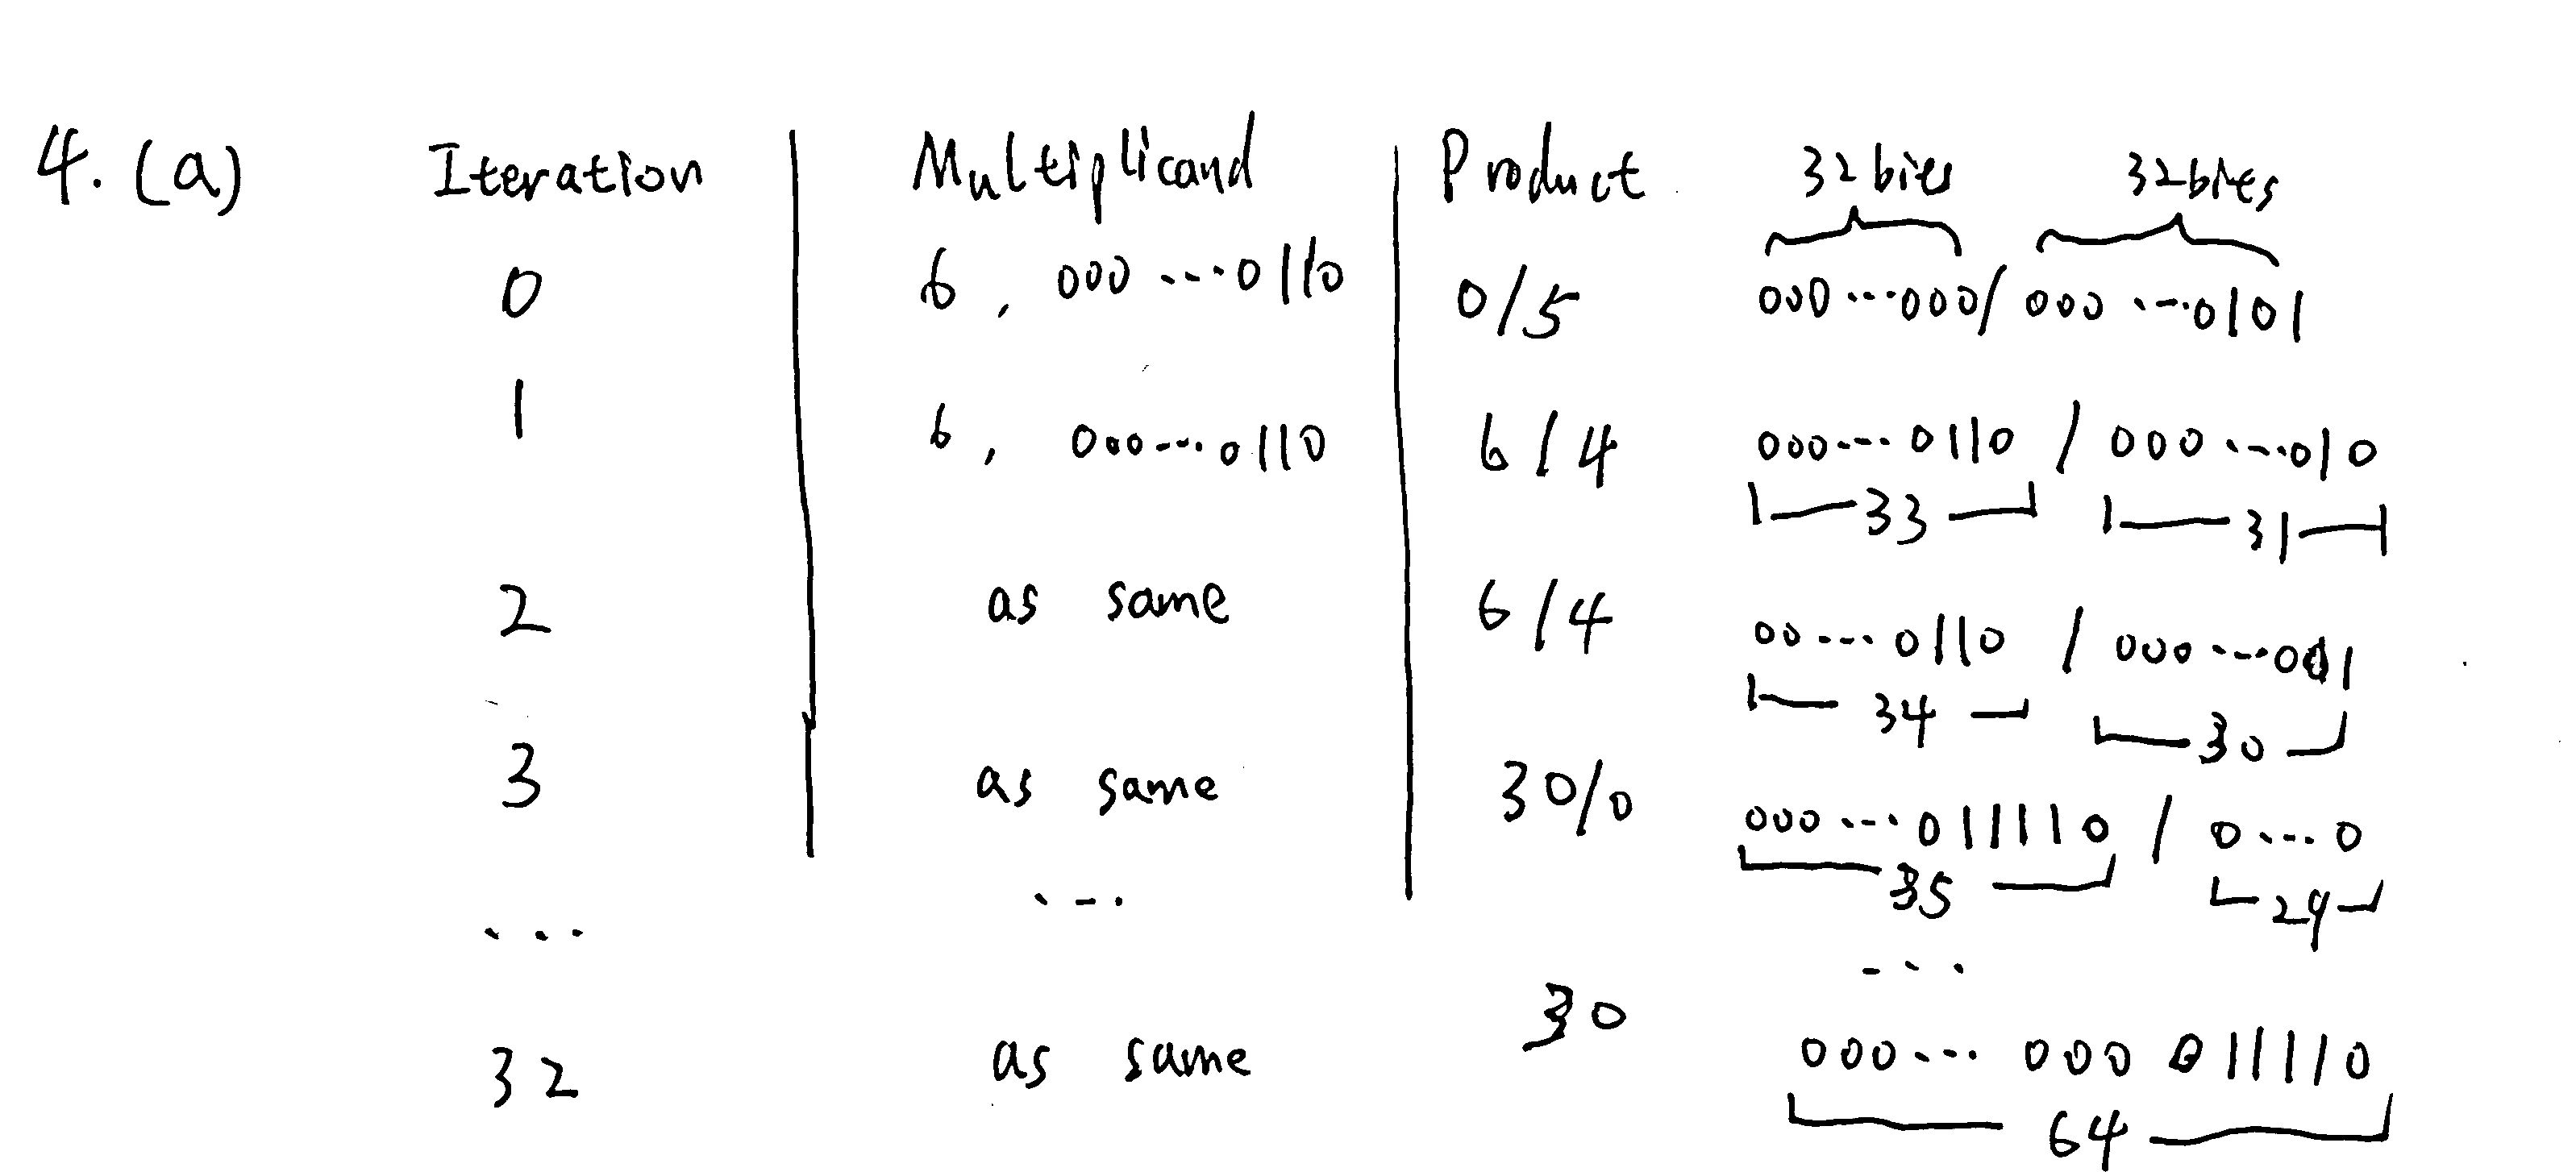 4. (a) Iteration Multiplicand Product 32 bits 32 bits
0 6, 000 ... 0110 0/5 000 ... 000 / 000 ... 0101
1 6, 000 ... 0110 6/4 000 ... 0110 / 000 ... 010
33 31
2 as same 6/4 00 ... 0110 / 000 ... 001
34 30
3 as same 30/0 000 ... 011110 / 0 ... 0
35 29
... ... ...
32 as same 30 000 ... 000 011110
64